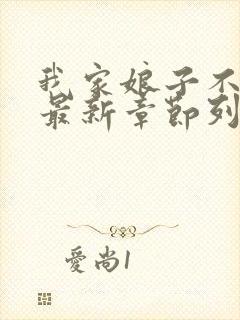 我家娘子不
最新章節列
愛尚1